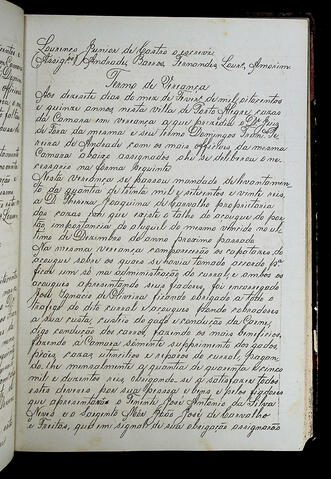 Lourenço Junior de Castro o escrevi
Assig.os / Andrade, Barros, Fernandes, Lour.o, Amorim
Termo de Vereança
Aos dezesete dias do mez de Fever.o de mil oitocentos
e quinze annos nesta villa de Porto Alegre, cazas
da Camara em vereança a que prezidio o Dr. Juiz
de Fora da mesma e seu termo Domingos
de Andrade com os mais officiaes da mesma
Camara abaixo assignados ahi se deliberou o ne-
cessario na forma seguinte
Nesta vereança se passou mandado de levantamen-
to da quantia de trinta mil e setecentos e vinte reis,
a D. Joaquina de Carvalho proprietaria
das cazas em que existe o talho do açougue do por-
tão importancia do aluguel do mesmo vencido no ul-
timo de Dezembro do anno proximo passado
Na mesma vereança comparecerão os capatazes do
açougue sobre os quaes se havia tomado accordo de
ficar um só na administração do curral, e ambos os
açougues apresentando seus fiadores, foi encarregado
José Ignacio de Oliveira ficando obrigado a todo o
trafego do dito curral e açougues, dando cobradores
a sua custa, custeio do gado e condução da Carne,
digo condução dos carros, fazendo os mais beneficios,
fazendo a Camara sómente supprimento dos gados,
paios, cazas, utencilios e reparos do curral, pagan-
do-lhe mensalmente a quantia de quarenta e cinco
mil e duzentos reis, obrigando-se a satisfazer todos
estes deveres por sua pessoa e bens, e pelos fiadores
que apresentarão o Tenente José Antonio da Silva
Neves e o Sargento Mór João José de Carvalho
e Freitas, que em signal de sua obrigação assignarão